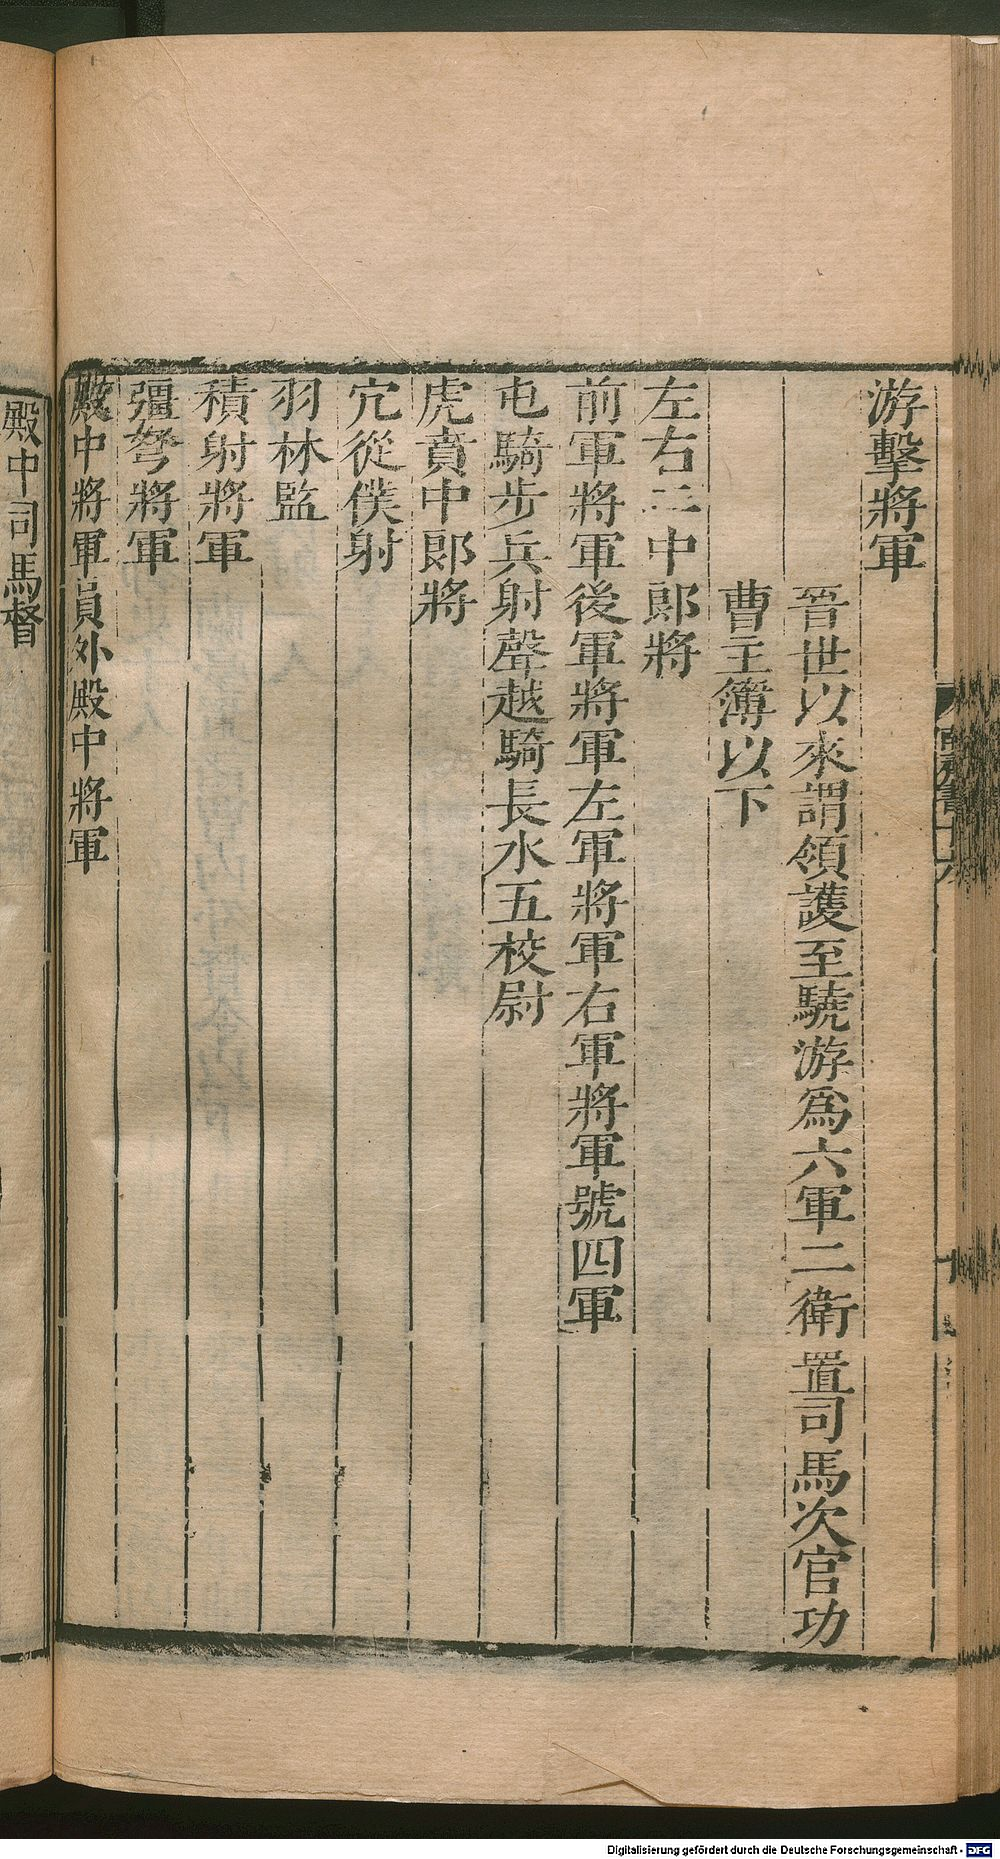 游擊將軍
晉世以來謂領護至驍游爲六軍二衛置司馬次官功
曹主簿以下
左右二中郎將
前軍將軍後軍將軍左軍將軍右軍將軍號四軍
屯騎步兵射聲越騎長水五校尉
虎賁中郎將
宂從僕射
羽林監
積射將軍
彊弩將軍
殿中將軍員外殿中將軍
殿中司馬督
Digitalisierung gefördert durch die Deutsche Forschungsgemeinschaft - DFG